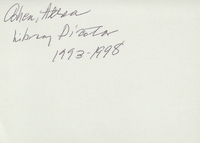 Cohen, Althea
Library Director
1993-1998